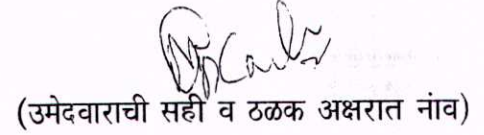 (उमेदवाराची सही व ठळक अक्षरात नांव)